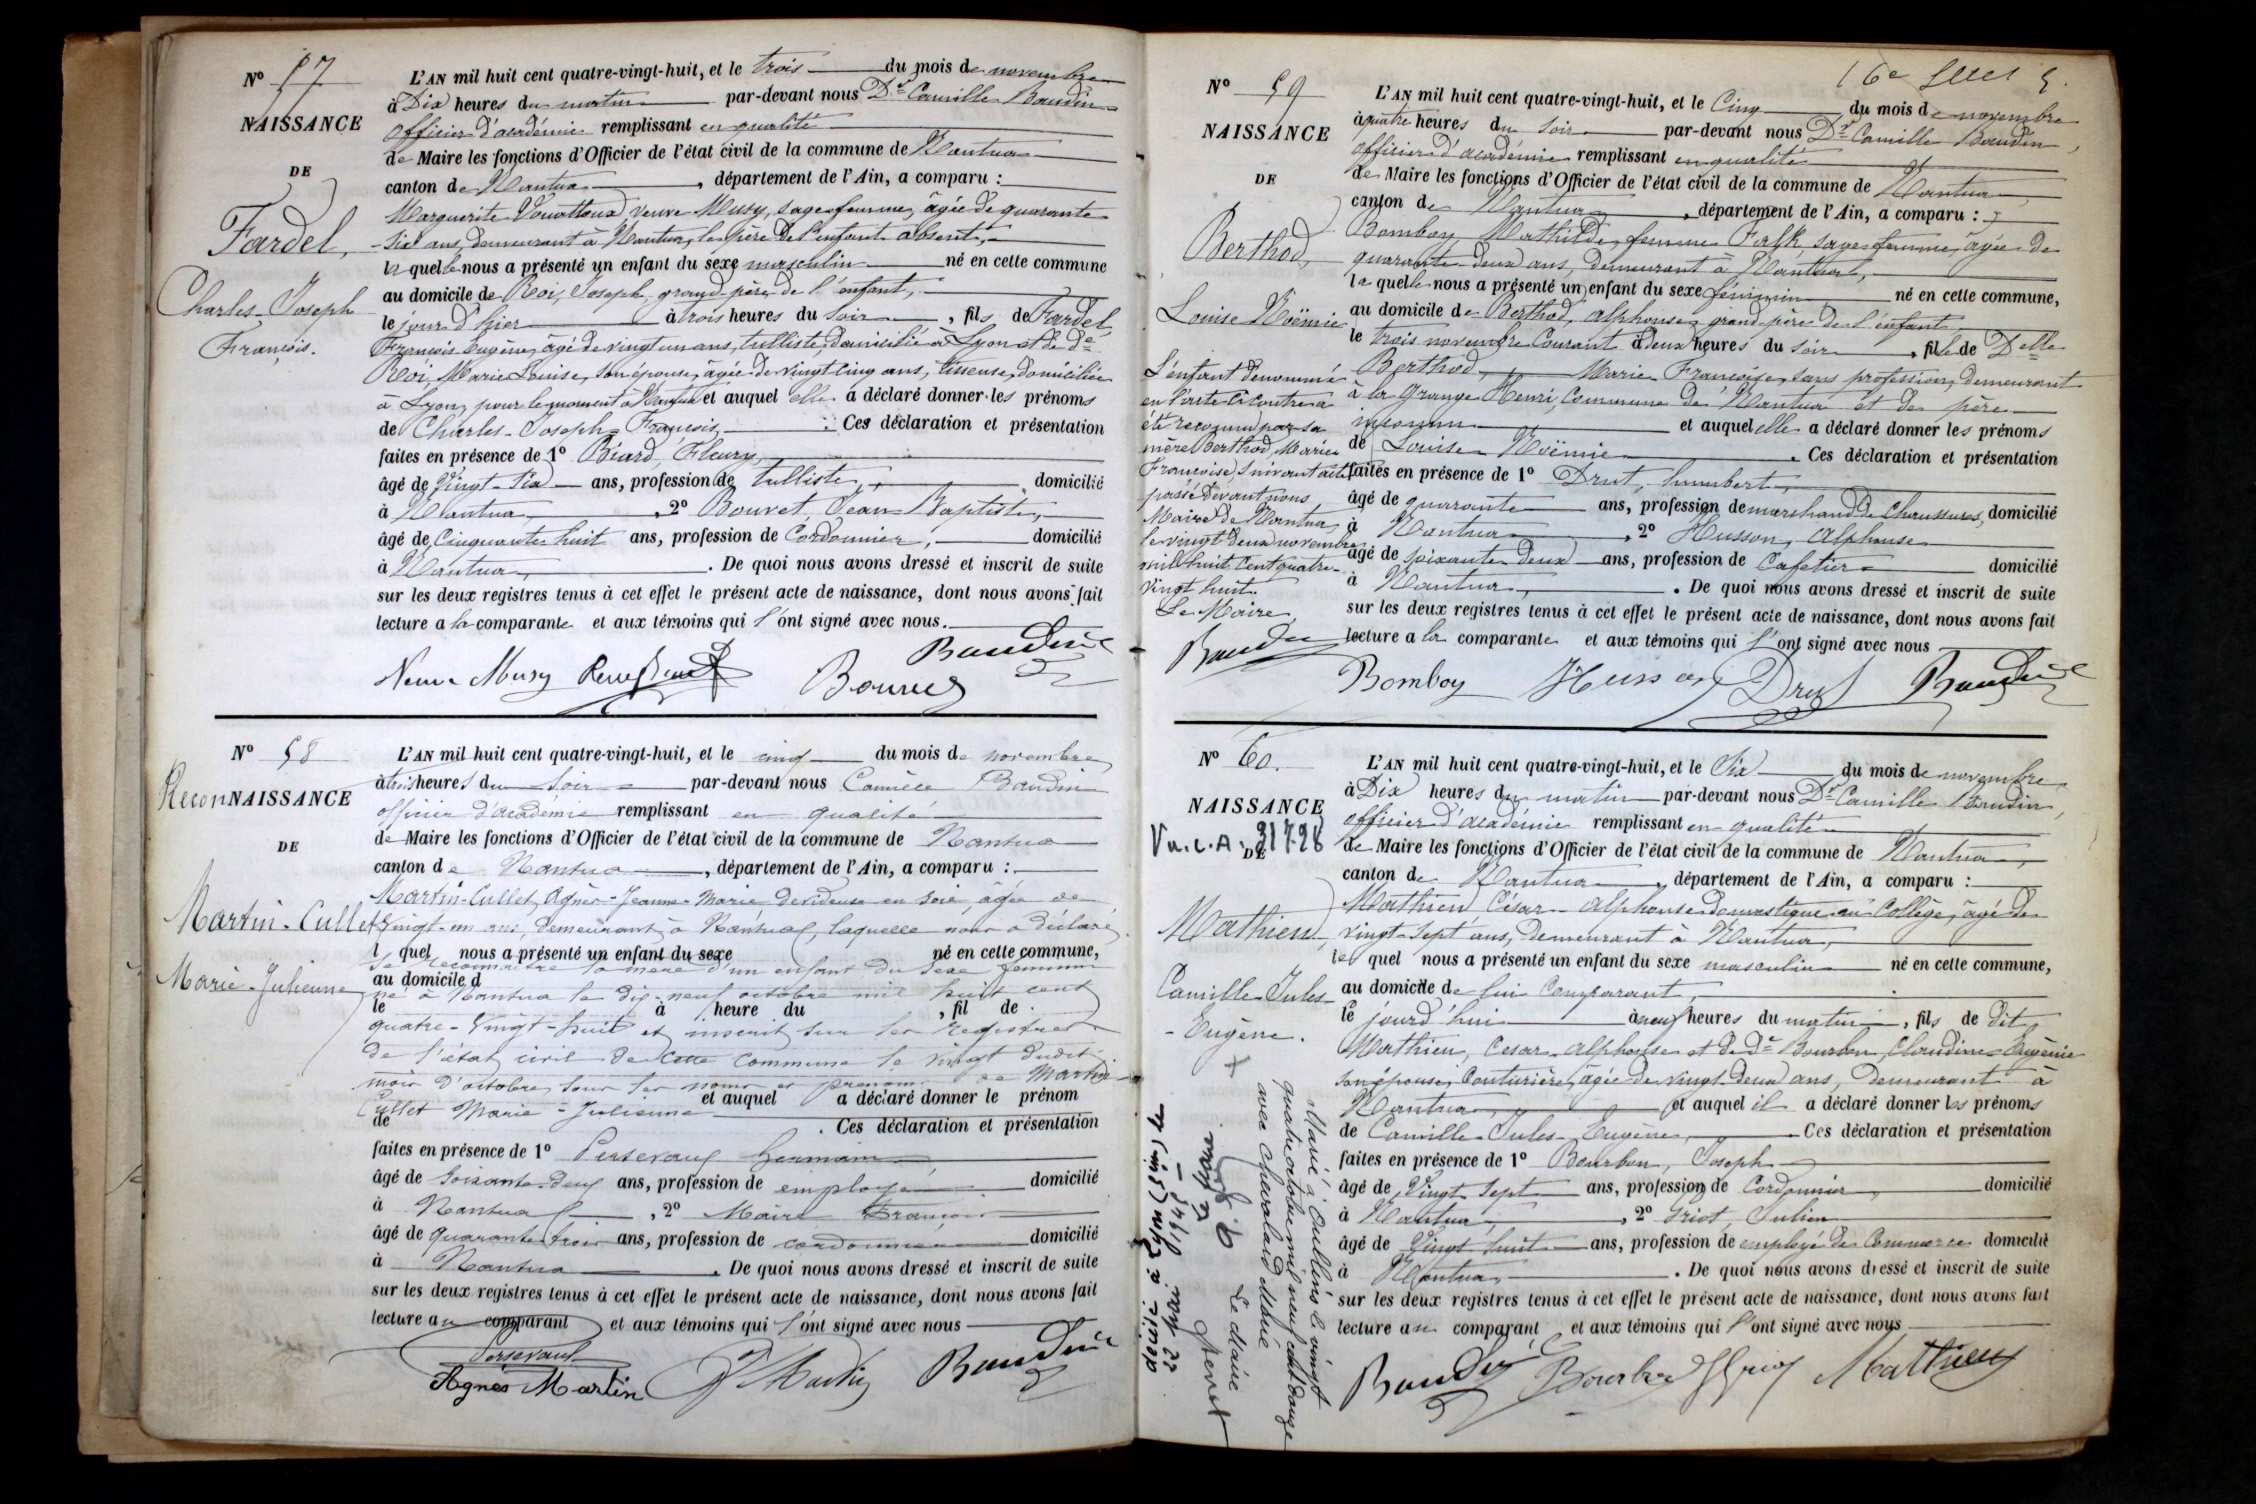 Nº 57
NAISSANCE
DE
Fardel,
Charles-Joseph
François.
L'AN mil huit cent quatre-vingt-huit, et le trois du mois de novembre
à Dix heures du matin par-devant nous Dr Camille Baudin
officier d'académie remplissant en qualité
de Maire les fonctions d'Officier de l'état civil de la commune de Nantua
canton de Nantua, département de l'Ain, a comparu :
Marguerite veuve Musy, sage femme, âgée de quarante
six ans, demeurant à Nantua, le père de l'enfant absent,
laquelle nous a présenté un enfant du sexe masculin né en cette commune
au domicile de Roi, Joseph, grand-père de l'enfant,
le jour d'hier à trois heures du soir, fils de Fardel
François Eugène, âgé de vingt un ans, tulliste, domicilié à Lyon et de de
Roi, Marie Louise, son épouse, âgée de vingt cinq ans, tisseuse, domiciliée
à Lyon, pour le moment à Nantua et auquel elle a déclaré donner les prénoms
de Charles-Joseph-François. Ces déclaration et présentation
faites en présence de 1º Béard, Fleury,
âgé de Vingt-six ans, profession de tulliste, domicilié
à Nantua, 2º Bouvet, Jean Baptiste,
âgé de Cinquante huit ans, profession de Cordonnier, domicilié
à Nantua, . De quoi nous avons dressé et inscrit de suite
sur les deux registres tenus à cet effet le présent acte de naissance, dont nous avons fait
lecture a la comparante et aux témoins qui l'ont signé avec nous.
Baudin
Veuve Musy Bouvet
Nº 58
ReconNAISSANCE
DE
Martin-Cullet
Marie-Julienne
L'AN mil huit cent quatre-vingt-huit, et le cinq du mois de novembre
à trois heures du soir par-devant nous Camille Baudin
officier d'académie remplissant en qualité
de Maire les fonctions d'Officier de l'état civil de la commune de Nantua
canton de Nantua, département de l'Ain, a comparu :
Martin-Cullet, Agnès-Jeanne-Marie devideuse en soie, âgée de
vingt-un ans, demeurant à Nantua, laquelle nous a déclaré
l quel nous a présenté un enfant du sexe né en cette commune,
se reconnaitre la mère d'un enfant du sexe féminin
au domicile d
né à Nantua le dix-neuf octobre mil huit cent
le à heure du , fil de
quatre-vingt-huit et inscrit sur les registres
de l'état civil de cette commune le vingt dudit
mois d'octobre sous les noms et prénoms de Martin-
et auquel a déclaré donner le prénom
Cullet Marie-Julienne
de . Ces déclaration et présentation
faites en présence de 1º Perseraud Germain
âgé de soixante-deux ans, profession de employé domicilié
à Nantua, 2º Maire François
âgé de quarante trois ans, profession de cordonnier domicilié
à Nantua . De quoi nous avons dressé et inscrit de suite
sur les deux registres tenus à cet effet le présent acte de naissance, dont nous avons fait
lecture au comparant et aux témoins qui l'ont signé avec nous
Perseraud
Agnès Martin Baudin
16e
Nº 59
NAISSANCE
DE
Berthod,
Louise Noëmie
L'enfant dénommé
en l'acte ci contre a
été reconnu par sa
mère Berthod, Marie
Françoise, suivant acte
passé devant nous
Maire de Nantua
le vingt deux novembre
mil huit cent quatre-
vingt huit.
Le Maire
Baudin
L'AN mil huit cent quatre-vingt-huit, et le Cinq du mois de novembre
à quatre heures du soir par-devant nous Dr Camille Baudin,
officier d'académie remplissant en qualité
de Maire les fonctions d'Officier de l'état civil de la commune de Nantua
canton de Nantua, département de l'Ain, a comparu :
Bomboy Mathilde, femme Falk, sage femme, âgée de
quarante-deux ans, demeurant à Nantua,
laquelle nous a présenté un enfant du sexe féminin né en cette commune,
au domicile de Berthod, Alphonse, grand-père de l'enfant
le trois novembre courant à deux heures du soir, fille de Delle
Berthod, Marie Françoise, sans profession, demeurant
à la Grange Henri, Commune de Nantua et de père
inconnu et auquel elle a déclaré donner les prénoms
de Louise Noëmie . Ces déclaration et présentation
faites en présence de 1º Drut, humbert,
âgé de quarante ans, profession de marchand de Chaussures, domicilié
à Nantua, 2º Husson, Alphonse
âgé de soixante deux ans, profession de Cafetier domicilié
à Nantua, . De quoi nous avons dressé et inscrit de suite
sur les deux registres tenus à cet effet le présent acte de naissance, dont nous avons fait
lecture a la comparante et aux témoins qui l'ont signé avec nous
Bomboy Husson Drut Baudin
Nº 60.
NAISSANCE
DE
Mathieu,
Camille-Jules-
-Eugène.
L'AN mil huit cent quatre-vingt-huit, et le Six du mois de novembre
à Dix heures du matin par-devant nous Dr Camille Baudin,
officier d'académie remplissant en qualité
de Maire les fonctions d'Officier de l'état civil de la commune de Nantua
canton de Nantua, département de l'Ain, a comparu :
Mathieu, César-Alphonse domestique au Collège, âgé de
vingt-sept ans, demeurant à Nantua,
le quel nous a présenté un enfant du sexe masculin né en cette commune,
au domicile de lui Comparant,
le jourd'hui à neuf heures du matin, fils de dit
Mathieu, César-Alphonse et de de Bourbon, Claudine-Eugénie
son épouse, Couturière, âgée de vingt-deux ans, demeurant à
Nantua, et auquel il a déclaré donner les prénoms
de Camille-Jules-Eugène, Ces déclaration et présentation
faites en présence de 1º Bourbon, Joseph
âgé de Vingt sept ans, profession de Cordonnier domicilié
à Nantua, 2º Griot, Julien
âgé de Vingt huit ans, profession de employé de Commerce domicilié
à Nantua, . De quoi nous avons dressé et inscrit de suite
sur les deux registres tenus à cet effet le présent acte de naissance, dont nous avons fait
lecture au comparant et aux témoins qui l'ont signé avec nous
Baudin Bourbon Griot Mathieu
Marié à Oullins le vingt
quatre octobre mil neuf cent douze
avec Chavalard Marie
Le Maire
décédé à Lyon (5e) le
22 mai 1945